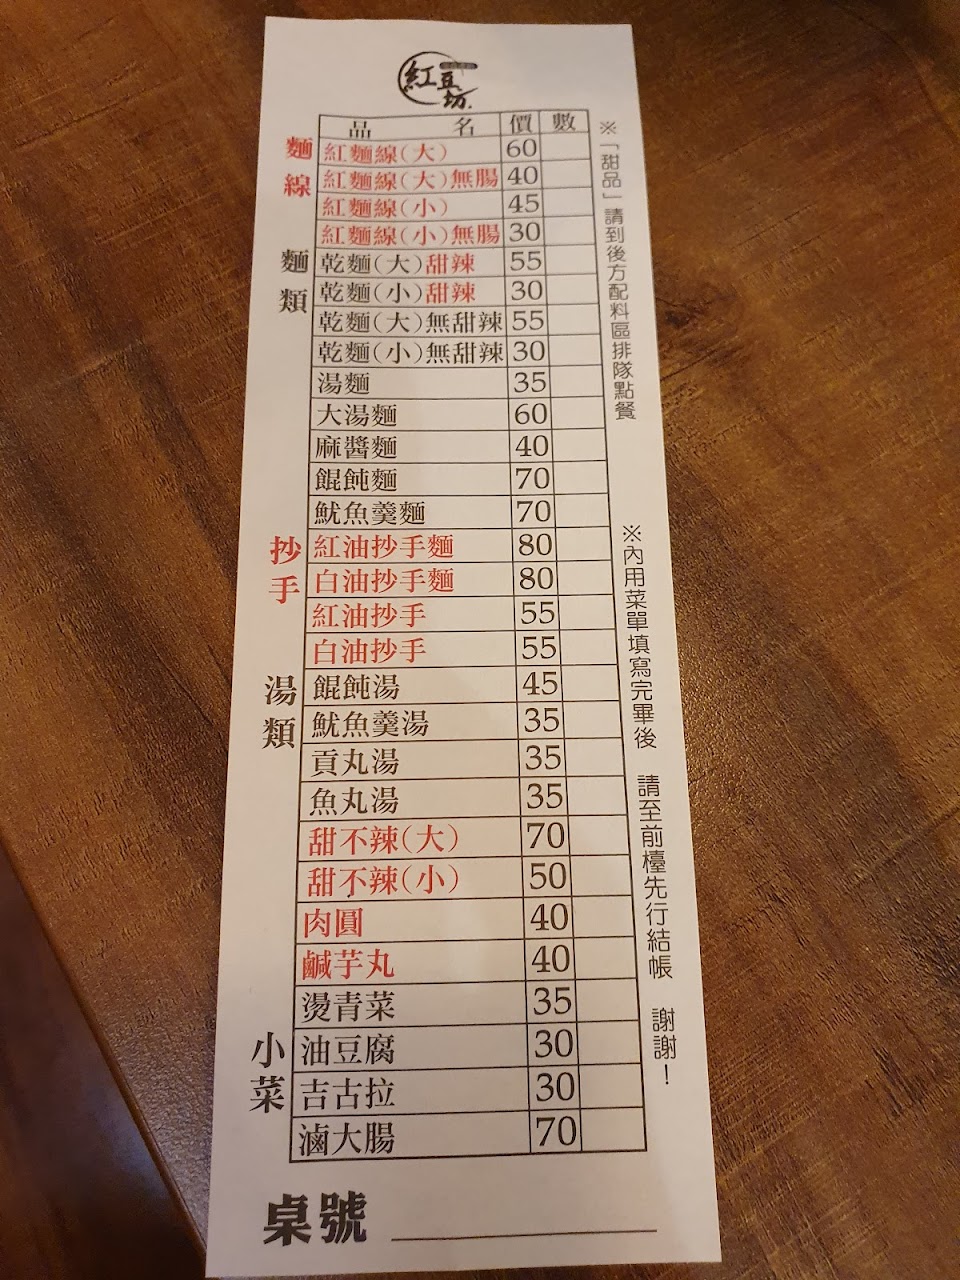 紅豆坊
品名 價 數
麵線
紅麵線(大) 60
紅麵線(大)無腸 40
紅麵線(小) 45
紅麵線(小)無腸 30
麵類
乾麵(大)甜辣 55
乾麵(小)甜辣 30
乾麵(大)無甜辣 55
乾麵(小)無甜辣 30
湯麵 35
大湯麵 60
麻醬麵 40
餛飩麵 70
魷魚羹麵 70
抄手
紅油抄手麵 80
白油抄手麵 80
紅油抄手 55
白油抄手 55
湯類
餛飩湯 45
魷魚羹湯 35
貢丸湯 35
魚丸湯 35
甜不辣(大) 70
甜不辣(小) 50
肉圓 40
鹹芋丸 40
燙青菜 35
小菜
油豆腐 30
吉古拉 30
滷大腸 70
※「甜品」請到後方配料區排隊點餐
※內用菜單填寫完畢後 請至前檯先行結帳 謝謝!
桌號